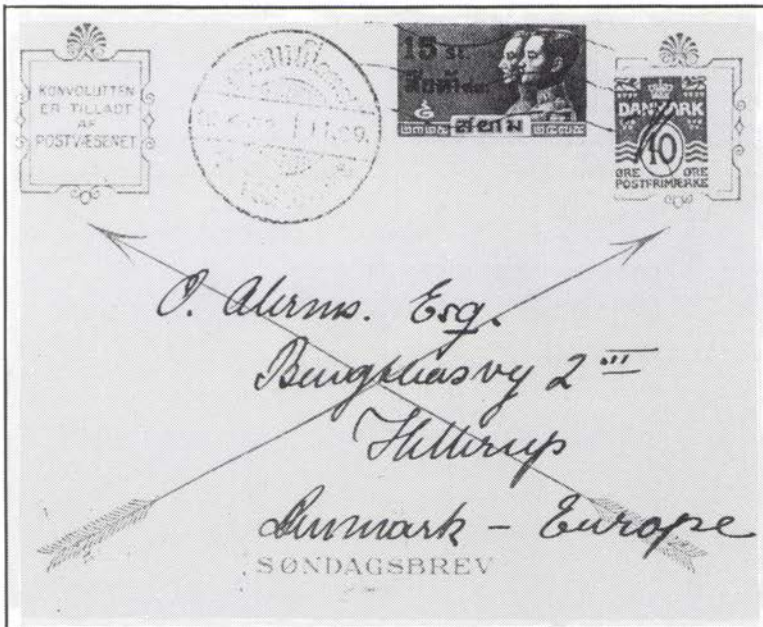 KONVOLUTTEN
ER TILLADT
AF
POSTVÆSENET
15 St.
สิบห้า
สยาม
๒๓๒๕ ๒๔๗๕
DANMARK
10
ØRE ØRE
POSTFRIMÆRKE
O. Ahrns. Esq.
2 III
Hellerup
Denmark - Europe
SØNDAGSBREV